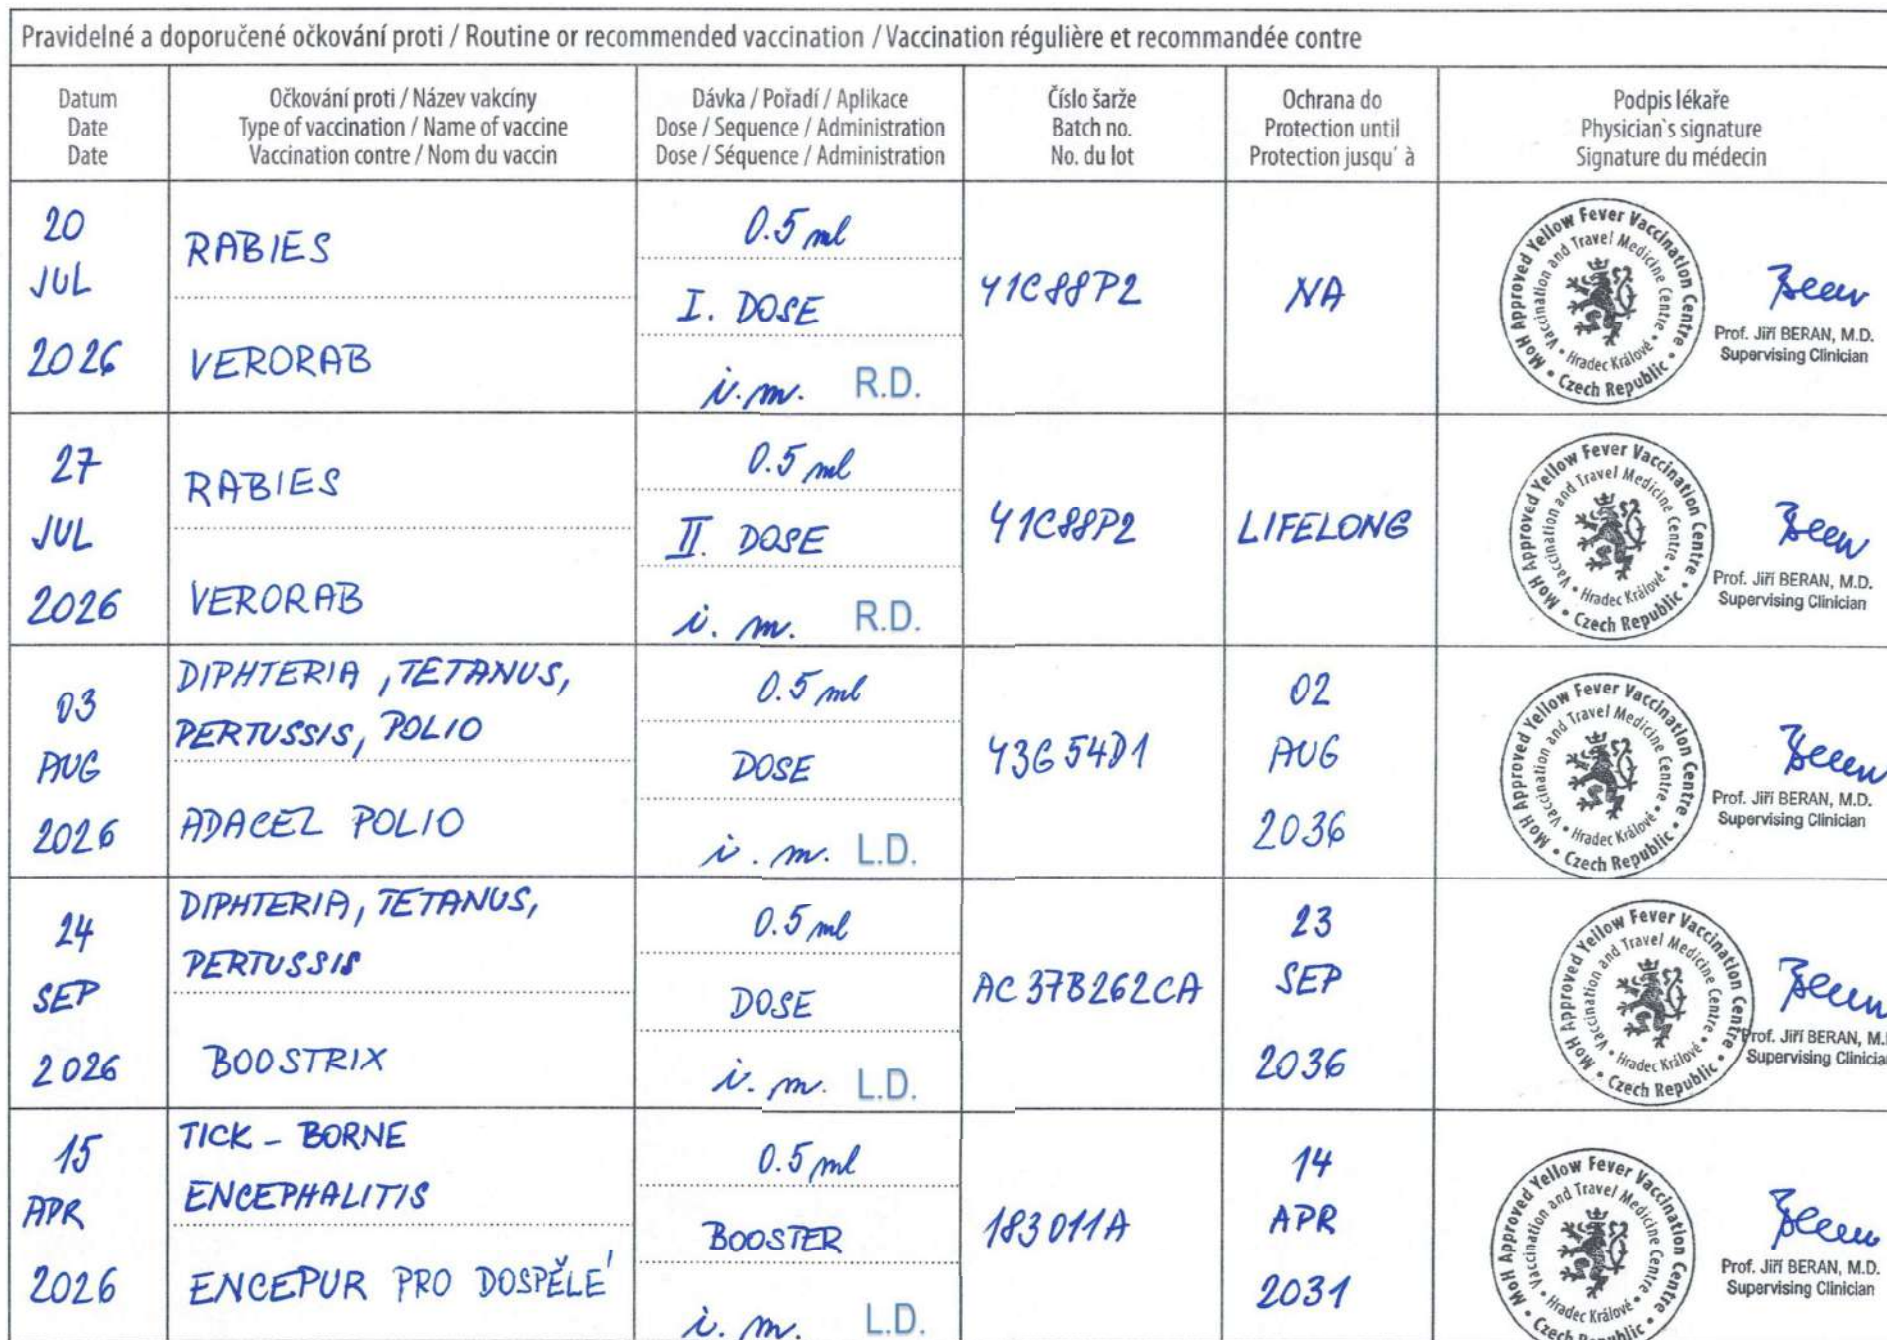 Pravidelné a doporučené očkování proti / Routine or recommended vaccination / Vaccination régulière et recommandée contre
Datum
Date
Date
Očkování proti / Název vakcíny
Type of vaccination / Name of vaccine
Vaccination contre / Nom du vaccin
Dávka / Pořadí / Aplikace
Dose / Sequence / Administration
Dose / Séquence / Administration
Číslo šarže
Batch no.
No. du lot
Ochrana do
Protection until
Protection jusqu´ à
Podpis lékaře
Physician`s signature
Signature du médecin
20
JUL
2026
RABIES
VERORAB
0.5 ml
I. DOSE
i.m. R.D.
Y1C88P2
NA
MoH Approved Yellow Fever Vaccination Centre • Czech Republic •
Vaccination and Travel Medicine Centre • Hradec Králové •
Prof. Jiří BERAN, M.D.
Supervising Clinician
27
JUL
2026
RABIES
VERORAB
0.5 ml
II. DOSE
i. m. R.D.
Y1C88P2
LIFELONG
MoH Approved Yellow Fever Vaccination Centre • Czech Republic •
Vaccination and Travel Medicine Centre • Hradec Králové •
Prof. Jiří BERAN, M.D.
Supervising Clinician
03
AUG
2026
DIPHTERIA, TETANUS,
PERTUSSIS, POLIO
ADACEL POLIO
0.5 ml
DOSE
i. m. L.D.
Y3G54D1
02
AUG
2036
MoH Approved Yellow Fever Vaccination Centre • Czech Republic •
Vaccination and Travel Medicine Centre • Hradec Králové •
Prof. Jiří BERAN, M.D.
Supervising Clinician
24
SEP
2026
DIPHTERIA, TETANUS,
PERTUSSIS
BOOSTRIX
0.5 ml
DOSE
i. m. L.D.
AC37B262CA
23
SEP
2036
MoH Approved Yellow Fever Vaccination Centre • Czech Republic •
Vaccination and Travel Medicine Centre • Hradec Králové •
Prof. Jiří BERAN, M.
Supervising Clinicia
15
APR
2026
TICK - BORNE
ENCEPHALITIS
ENCEPUR PRO DOSPĚLÉ
0.5 ml
BOOSTER
i. m. L.D.
183011A
14
APR
2031
MoH Approved Yellow Fever Vaccination Centre • Czech Republic •
Vaccination and Travel Medicine Centre • Hradec Králové •
Prof. Jiří BERAN, M.D.
Supervising Clinician